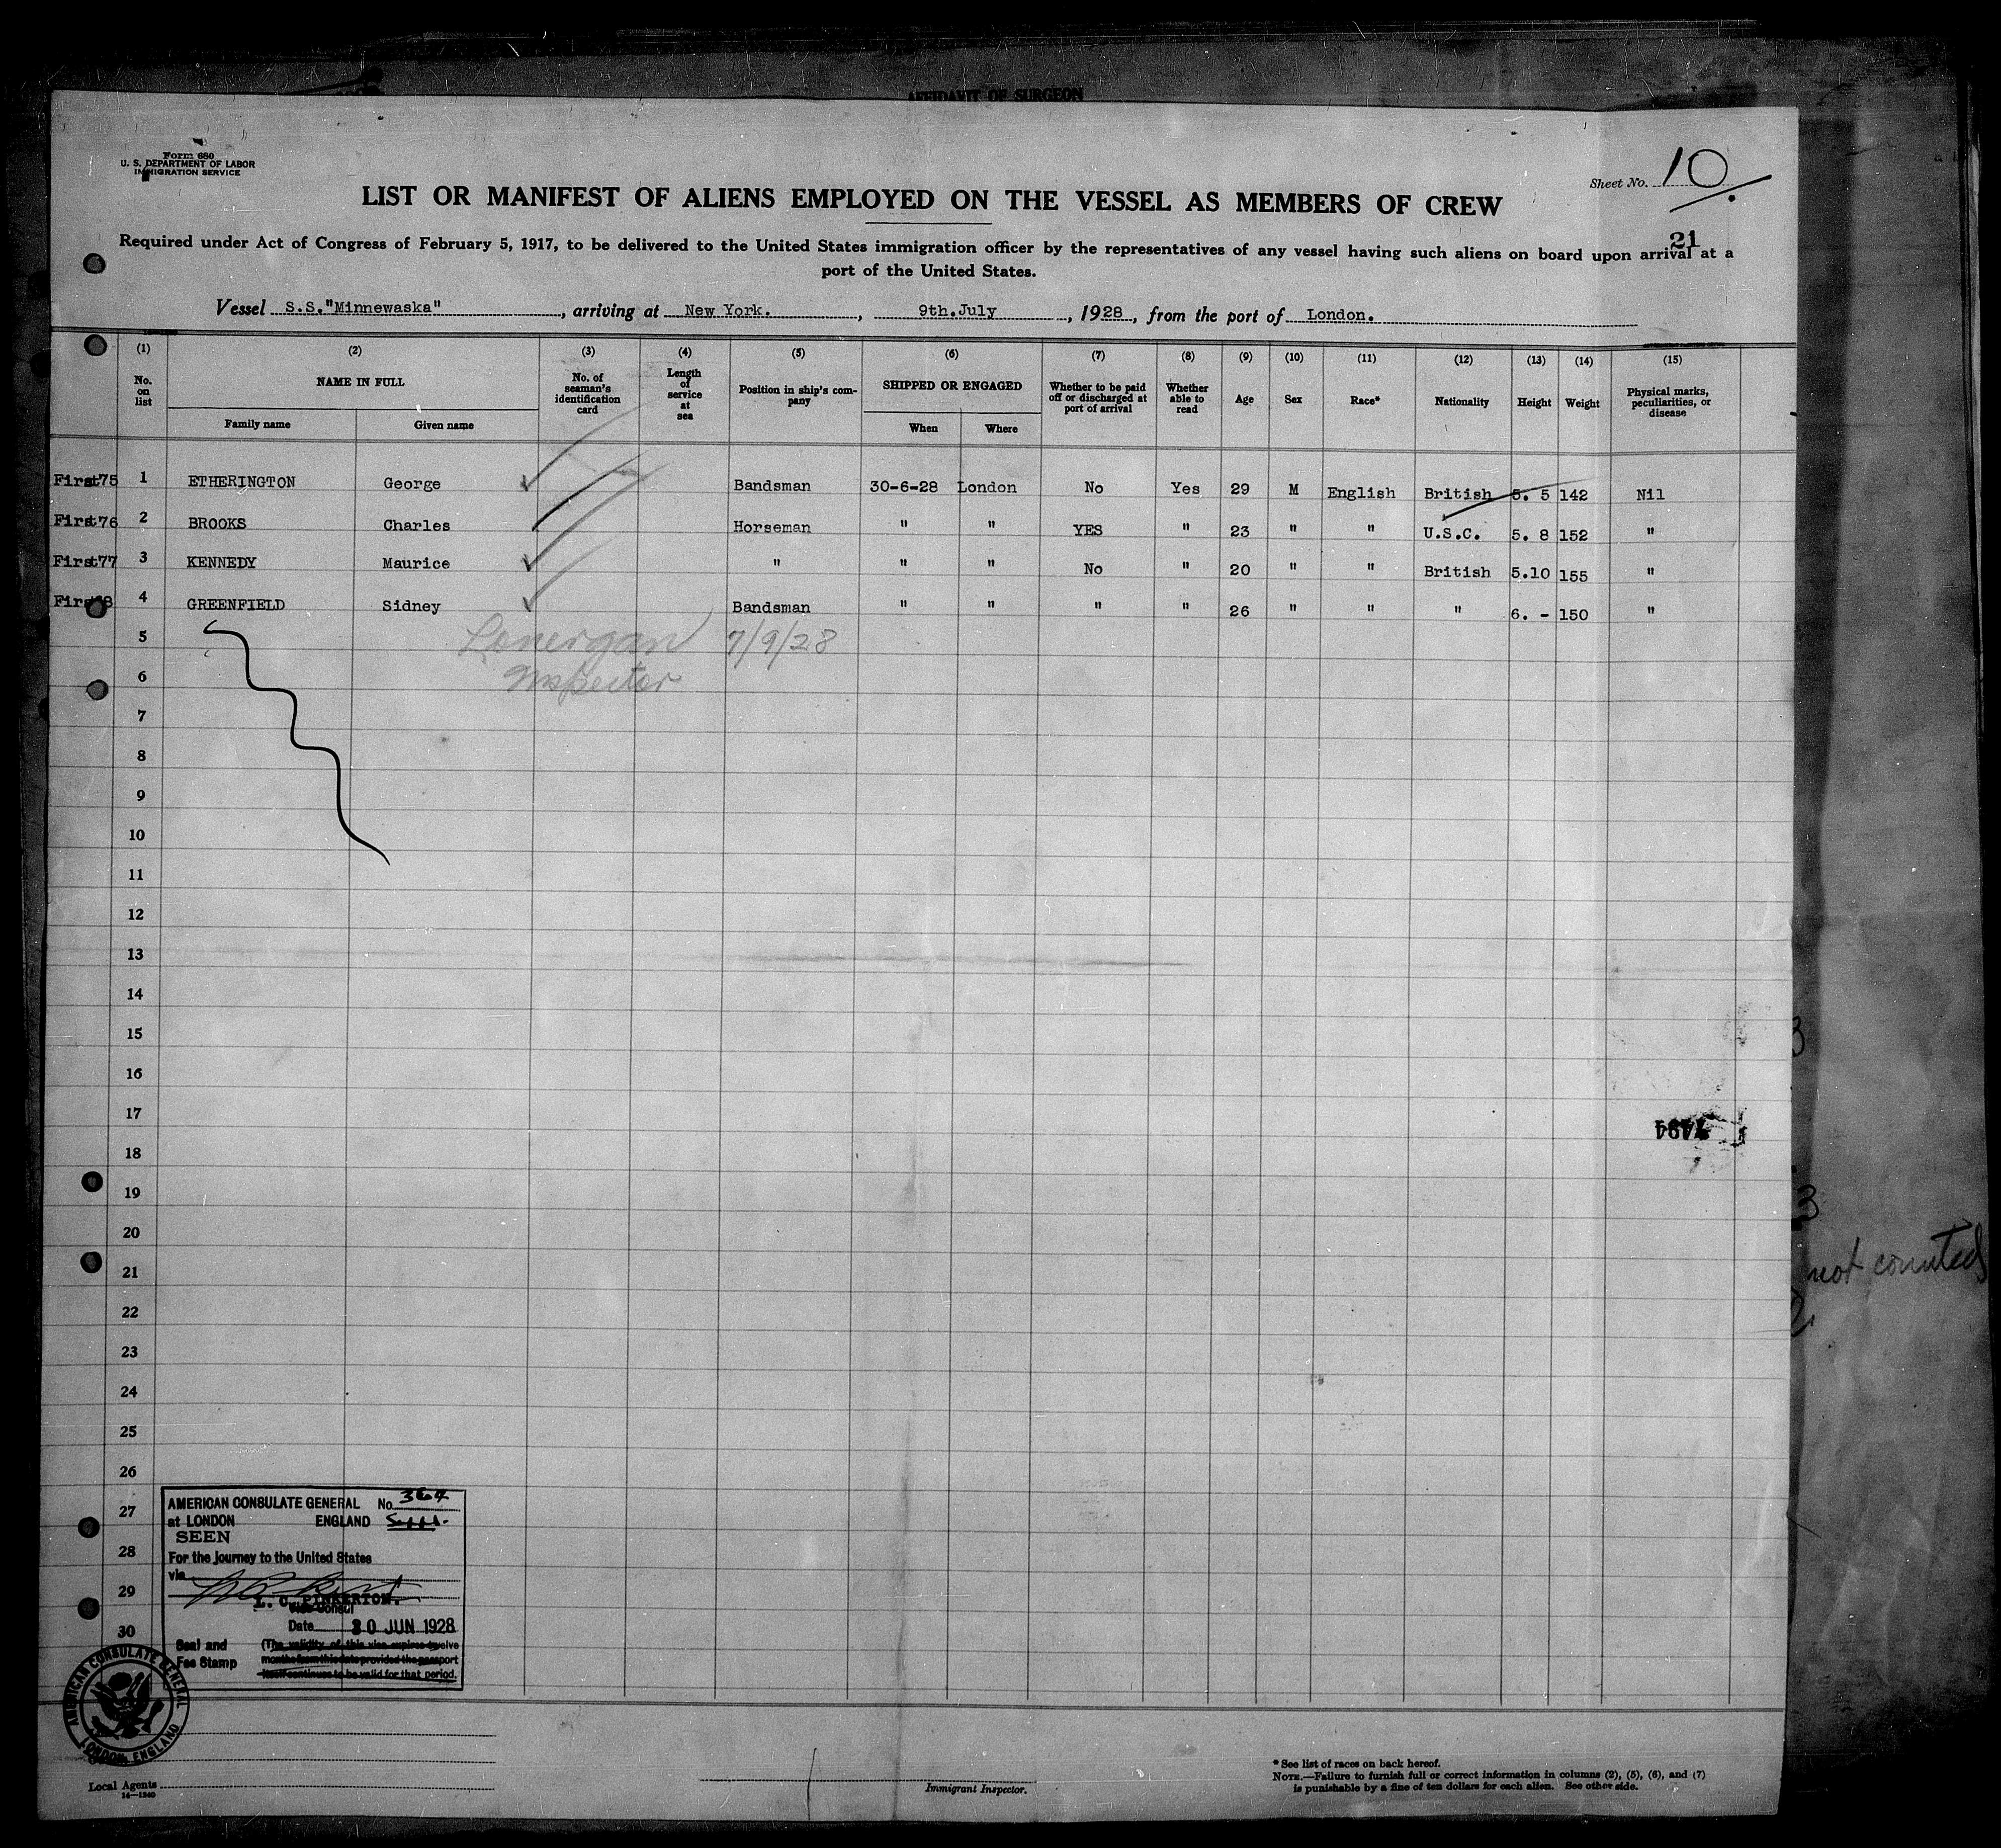 AFFIDAVIT OF SURGEON
Form 680
U. S. DEPARTMENT OF LABOR
IMMIGRATION SERVICE
Sheet No. 10
LIST OR MANIFEST OF ALIENS EMPLOYED ON THE VESSEL AS MEMBERS OF CREW
21
Required under Act of Congress of February 5, 1917, to be delivered to the United States immigration officer by the representatives of any vessel having such aliens on board upon arrival at a
port of the United States.
Vessel S.S."Minnewaska", arriving at New York., 9th.July, 1928, from the port of London.
(1) (2) (3) (4) (5) (6) (7) (8) (9) (10) (11) (12) (13) (14) (15)
No. on list NAME IN FULL No. of seaman's identification card Length of service at sea Position in ship's company SHIPPED OR ENGAGED Whether to be paid off or discharged at port of arrival Whether able to read Age Sex Race* Nationality Height Weight Physical marks, peculiarities, or disease
Family name Given name When Where
First 75 1 ETHERINGTON George Bandsman 30-6-28 London No Yes 29 M English British 5. 5 142 Nil
First 76 2 BROOKS Charles Horseman " " YES " 23 " " U.S.C. 5. 8 152 "
First 77 3 KENNEDY Maurice " " " No " 20 " " British 5.10 155 "
First 4 GREENFIELD Sidney Bandsman " " " " 26 " " " 6. - 150 "
5 Lonergan 7/9/28
6 Inspector
7
8
9
10
11
12
13
14
15
16
17
18
19
20
21
not counted
22
23
24
25
26
27
28
29
30
AMERICAN CONSULATE GENERAL No. 364
at LONDON ENGLAND
SEEN
For the journey to the United States
via
L. C. PINKERTON.
Vice Consul
Date 30 JUN 1928
Seal and Fee Stamp
(The validity of this visa expires twelve
months from this date provided the passport
itself continues to be valid for that period.
AMERICAN CONSULATE GENERAL
LONDON, ENGLAND
Local Agents
14—1240
Immigrant Inspector.
* See list of races on back hereof.
NOTE.—Failure to furnish full or correct information in columns (2), (5), (6), and (7)
is punishable by a fine of ten dollars for each alien. See other side.